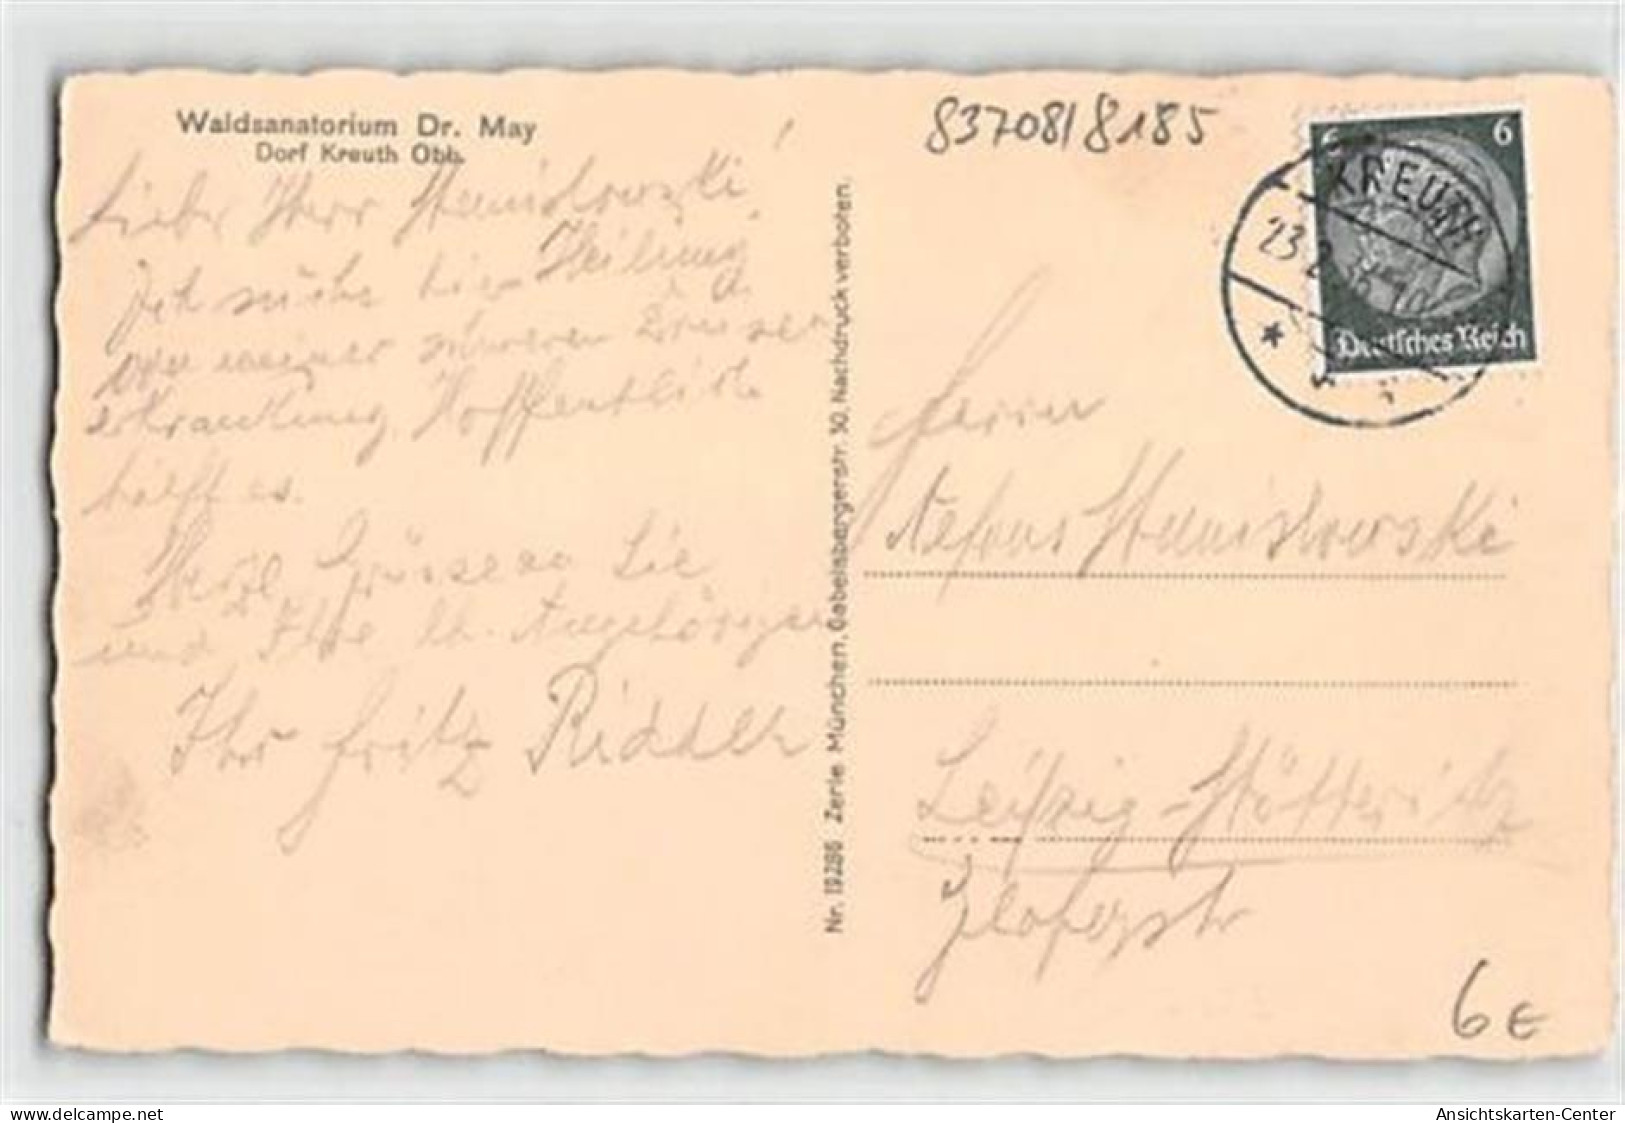 Waldsanatorium Dr. May
Dorf Kreuth Obb.
Lieber Herr Stanislowski!
Ich suche hier Heilung
von meiner schweren Drüsen
erkrankung. Hoffentlich
hilft es.
Herzl. Grüssen Sie
und Ihre lb. Angehörigen
Ihr Fritz
Nr. 19286 Zerle München, Gabelsbergerstr. 30, Nachdruck verboten.
83708/8185
6 6
Deutsches Reich
KREUTH
23.2
Herrn
Alfons Stanislowski
Leipzig-Stötteritz
6 €
www.delcampe.net
Ansichtskarten-Center